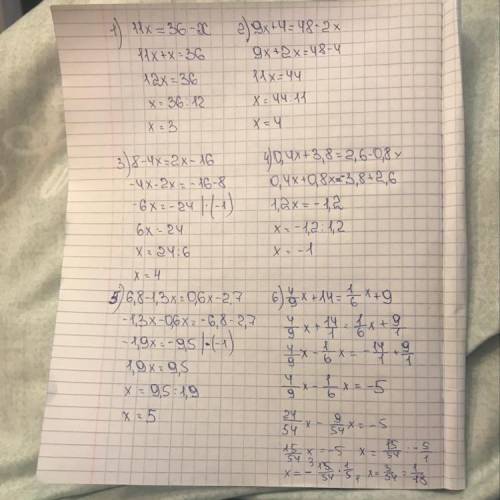 1) 11x=36-x
11x+x=36
12x=36
x=36:12
x=3
2) 9x+4=48-2x
9x+2x=48-4
11x=44
x=44:11
x=4
3) 8-4x=2x-16
-4x-2x=-16-8
-6x=-24 |·(-1)
6x=24
x=24:6
x=4
4) 0,4x+3,8=2,6-0,8x
0,4x+0,8x=-3,8+2,6
1,2x=-1,2
x=-1,2:1,2
x=-1
5) 6,8-1,3x=0,6x-2,7
-1,3x-0,6x=-6,8-2,7
-1,9x=-9,5 |·(-1)
1,9x=9,5
x=9,5:1,9
x=5
6) 4/9 x+14=1/6 x+9
4/9 x+14/1=1/6 x+9/1
4/9 x-1/6 x=-14/1+9/1
4/9 x-1/6 x=-5
24/54 x-9/54 x=-5
15/54 x=-5 x=15/54:-5/1